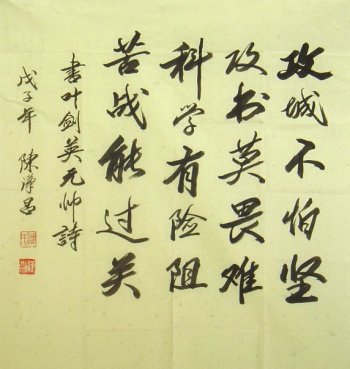 攻城不怕坚
攻书莫畏难
科学有险阻
苦战能过关
书叶剑英元帅詩
戊子年 陳澤昌